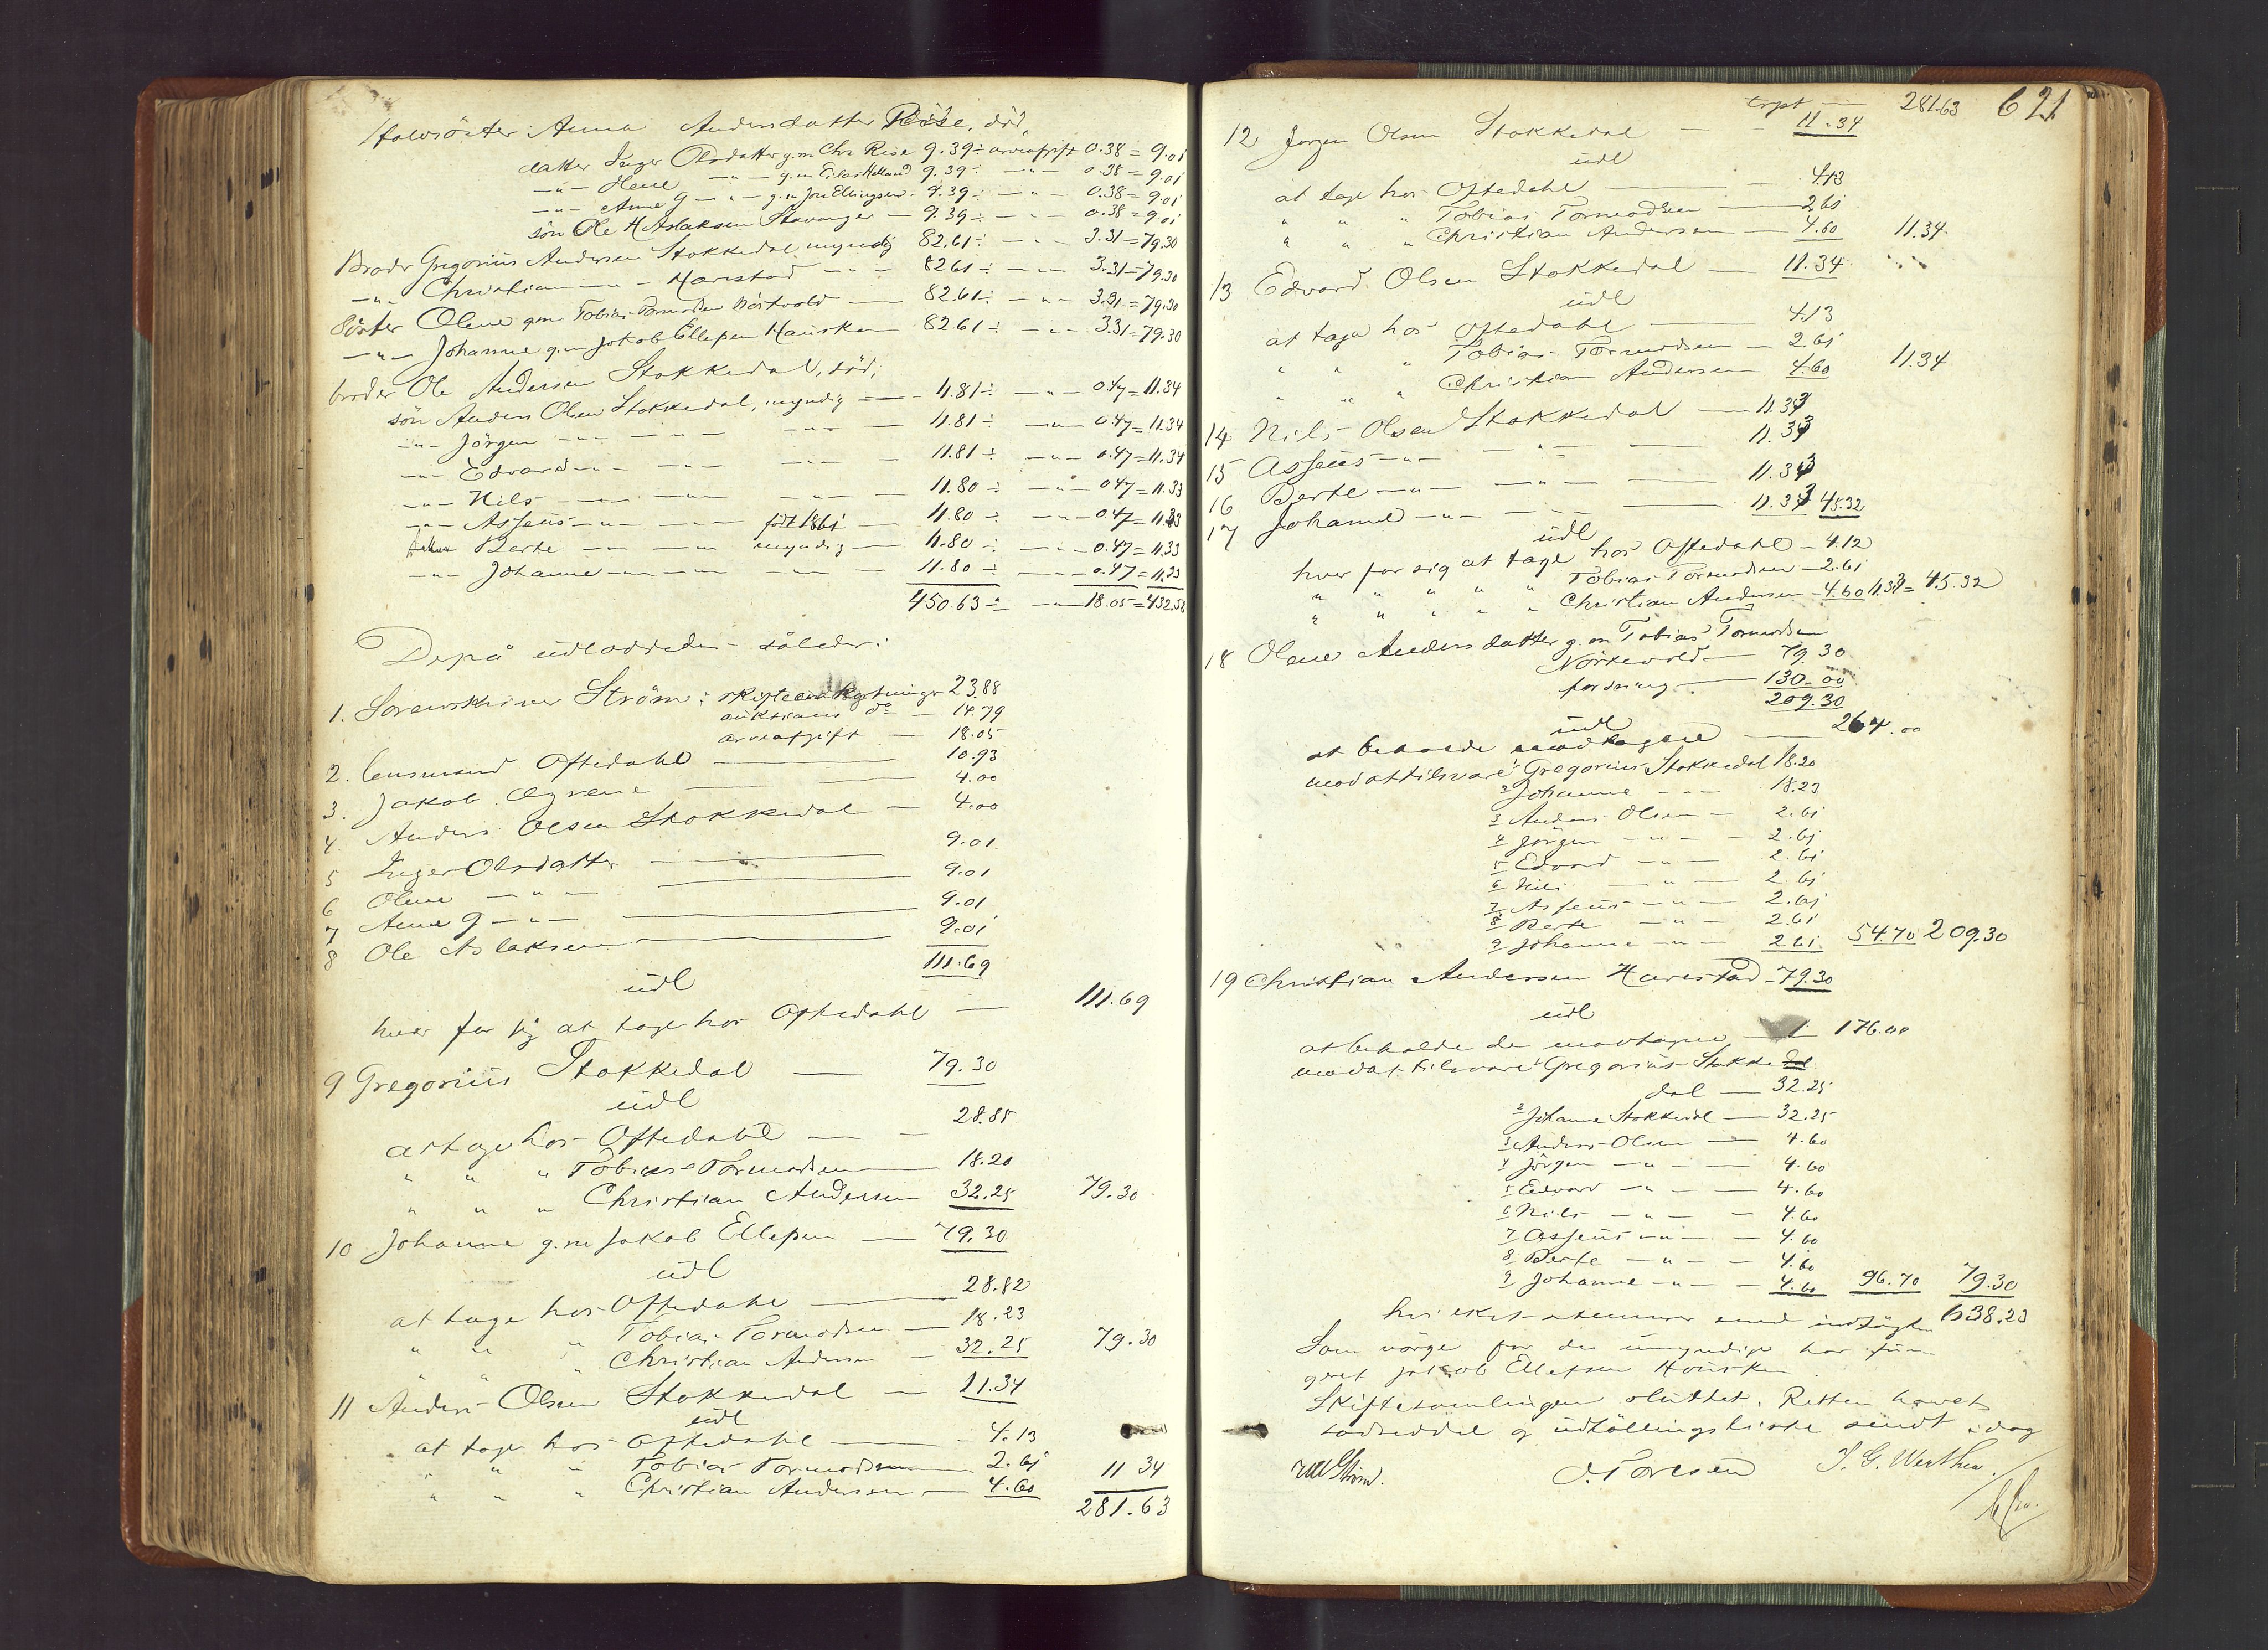 Halvsöster Anna Andersdatter Reise, död,
datter Inger Olsdatter g.m Chr Rise 9.39 ÷ arveafgift 0.38 = 9.01
-"- Olene -"- g.m Elias Helland 9.39 ÷ -"- 0.38 = 9.01
-"- Anne G -"- g.m Jon Ellingsen 9.39 ÷ -"- 0.38 = 9.01
sön Ole H Aslaksen Stavanger - 9.39 ÷ -"- 0.38 = 9.01
Broder Gregorius Andersen Stokkedal myndig 82.61 ÷ -"- 3.31 = 79.30
-"- Christian -"- Harestad -"- 82.61 ÷ -"- 3.31 = 79.30
Söster Olene g.m Tobias Tormodsen 82.61 ÷ -"- 3.31 = 79.30
-"- Johanne g.m Jakob Ellefsen Hausken 82.61 ÷ -"- 3.31 = 79.30
broder Ole Andersen Stokkedal, död,
sön Anders Olsen Stokkedal, myndig - 11.81 ÷ -"- 0.47 = 11.34
-"- Jörgen -"- -"- -"- 11.81 ÷ -"- 0.47 = 11.34
-"- Edvard -"- -"- -"- 11.81 ÷ -"- 0.47 = 11.34
-"- Nils -"- -"- -"- 11.80 ÷ -"- 0.47 = 11.33
-"- Asseus -"- -"- född 1861 11.80 ÷ -"- 0.47 = 11.33
datter Berte -"- -"- myndig 11.80 ÷ -"- 0.47 = 11.33
-"- Johanne -"- -"- -"- 11.80 ÷ -"- 0.47 = 11.33
450.63 ÷ -"- 18.05 = 432.58
Derpå udloddedes således:
1. Sorenskriver Ström: skifteomkostninger 23.88
auktions do - 14.79
arveafgift - 18.05
2. Lensmand Oftedahl - 10.93
3. Jakob - 4.00
4. Anders Olsen Stokkedal - 4.00
5 Inger Olsdatter - 9.01
6 Olene -"- 9.01
7 Anne G -"- 9.01
8 Ole Aslaksen - 9.01
111.69
udl
hver for sig at tage hos Oftedahl - 111.69
9 Gregorius Stokkedal - 79.30
udl
at tage hos Oftedahl - 28.85
" " " Tobias Tormodsen - 18.20
" " " Christian Andersen 32.25 79.30
10 Johanne g.m Jakob Ellefsen - 79.30
udl
at tage hos Oftedahl - 28.82
" " " Tobias Tormodsen - 18.23
" " " Christian Andersen - 32.25 79.30
11 Anders Olsen Stokkedal - 11.34
udl
at tage hos Oftedahl - 4.13
" " " Tobias Tormodsen - 2.61
" " " Christian Andersen - 4.60 11 34
281.63
trpt - 281.63 621
12 Jörgen Olsen Stokkedal - 11.34
udl
at tage hos Oftedahl - 4.13
" " " Tobias Tormodsen - 2.61
" " " Christian Andersen - 4.60 11.34
13 Edvard Olsen Stokkedal - 11.34
udl
at tage hos Oftedahl - 4.13
" " " Tobias Tormodsen - 2.61
" " " Christian Andersen 4.60 11.34
14 Nils Olsen Stokkedal - 11.33
15 Asseus -"- -"- 11.33
16 Berte -"- -"- 11.33
17 Johanne -"- -"- 11.33 45.32
udl
hver for sig at tage hos Oftedahl - 4.12
" " " " " Tobias Tormodsen - 2.61
" " " " " Christian Andersen - 4.60 11.33 = 45.32
18 Olene Andersdatter g.m Tobias Tormodsen
- 79.30
fordring - 130.00
209.30
udl
at beholde modtagne - 264.00
mod at tilsvare 1 Gregorius Stokkedal 18.20
2 Johanne -"- 18.23
3 Anders Olsen - 2.61
4 Jörgen -"- 2.61
5 Edvard -"- 2.61
6 Nils -"- 2.61
7 Asseus -"- 2.61
8 Berte -"- 2.61
9 Johanne -"- 2.61 54.70 209.30
19 Christian Andersen Harestad - 79.30
udl
at beholde de modtagne - 176.00
mod at tilsvare 1 Gregorius Stokke
dal - 32.25
2 Johanne Stokkedal - 32.25
3 Anders Olsen - 4.60
4 Jörgen -"- 4.60
5 Edvard -"- 4.60
6 Nils -"- 4.60
7 Asseus -"- 4.60
8 Berte -"- 4.60
9 Johanne -"- 4.60 96.70 79.30
hvilket stemmer med indtægten 638.23
Som værge for de umyndige har fun-
geret Jakob Ellefsen Hausken
Skiftesamlingen sluttet. Retten hævet
lodseddel og udtællingsliste sendt i dag
Ström. O. Toresen